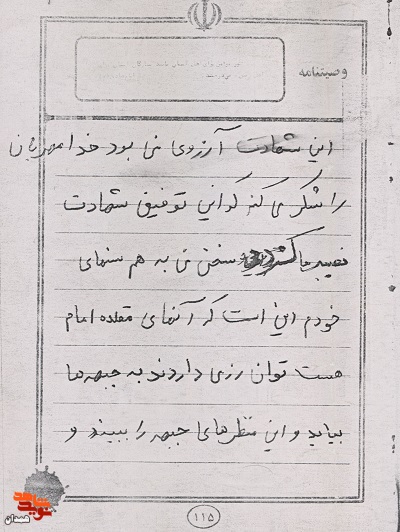 وصیتنامه
این شهادت آرزوی من بود خدا مهربان
را شکر می کنم که این توفیق شهادت
نصیب ما گردید سخن من به هم سنهای
خودم این است که آنهای مقلده امام
هست توان رزی داردند به جبهه ها
بیاید و این منظرهای جبهه را ببیند و
۱۱۵
نوید شاهد